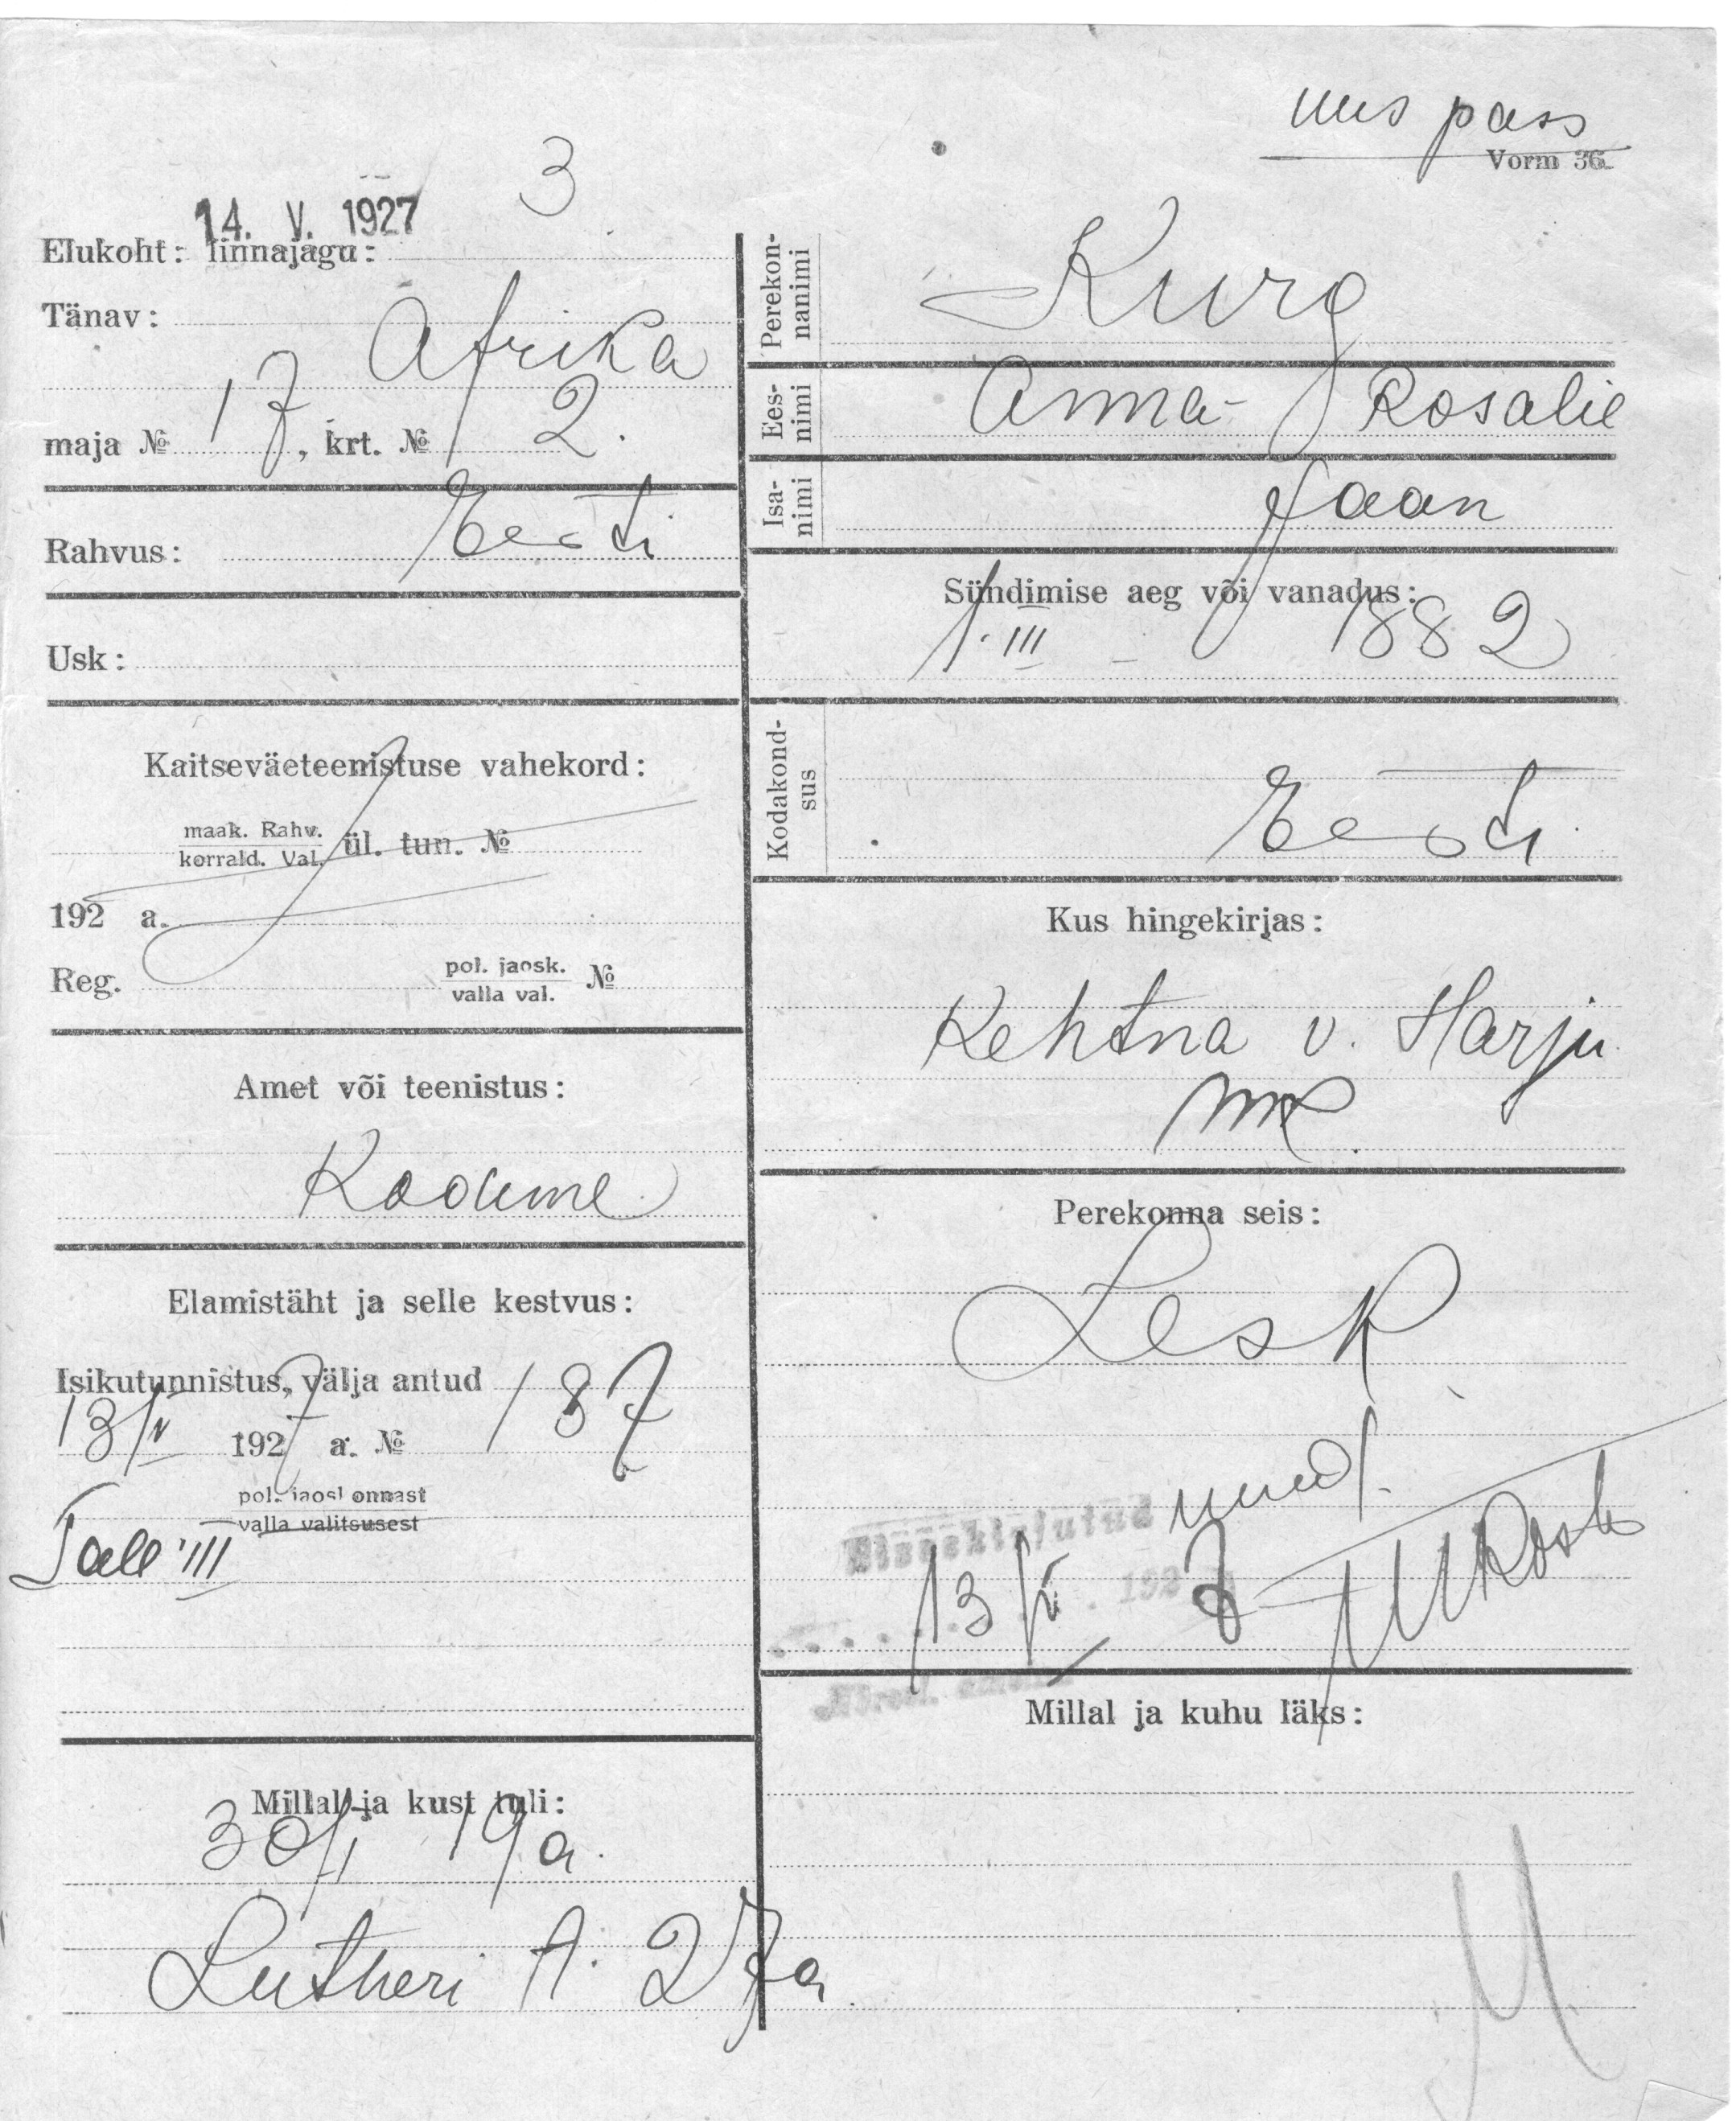 uus pass
Vorm 36.
3
14. V. 1927
Elukoht: linnajagu:
Tänav:
Afrika
maja № 17, krt. № 2.
Rahvus: Eesti
Usk:
Kaitseväeteenistuse vahekord:
maak. Rahv.
korrald. Val. ül. tun. №
192 a.
Reg. pol. jaosk.
valla val. №
Amet või teenistus:
Elamistäht ja selle kestvus:
Isikutunnistus, välja antud
13/V 1927 a. № 187
pol. jaosk onnast
valla valitsusest
Tall III
Millal ja kust tuli:
19 a.
Lutheri t. 27a
Perekon-
nanimi
Kurg
Ees-
nimi
Anna-Rosalie
Isa-
nimi
Jaan
Sündimise aeg või vanadus:
1. III - 1882
Kodakond-
sus
Eesti
Kus hingekirjas:
Kehtna v. Harju
mk.
Perekonna seis:
Lesk
Sissekirjutud
13/V 192 7
Millal ja kuhu läks: